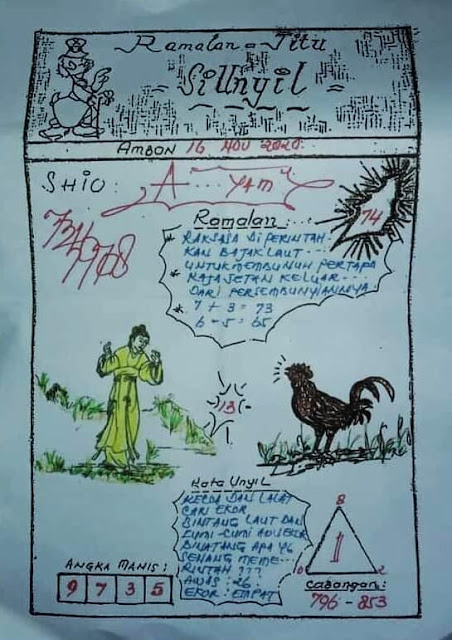 Ramalan = Jitu
SiUnyil
AMBON 16 NOV 2020
SHIO : A... YAM
74
734768
Ramalan :
* RAKSASA DIPERINTAH-
KAN BAJAK LAUT ...
UNTUK MEMBUNUH PERTAPA
* RAJA SETAN KELUAR ...
DARI PERSEMBUNYIANNYA
* 7 + 3 = 73
6 - 5 = 65
13
Kata Unyil
KECOA DAN LALAT
CARI EKOR
BINTANG LAUT DAN
CUMI-CUMI ADU EKOR
BINATANG APA YG
SENANG MEME...
RINTAH ???
AWAS : 26
EKOR : EMPAT
8
1
0 2
ANGKA MANIS :
9 7 3 5
Cabangan :
796 - 853